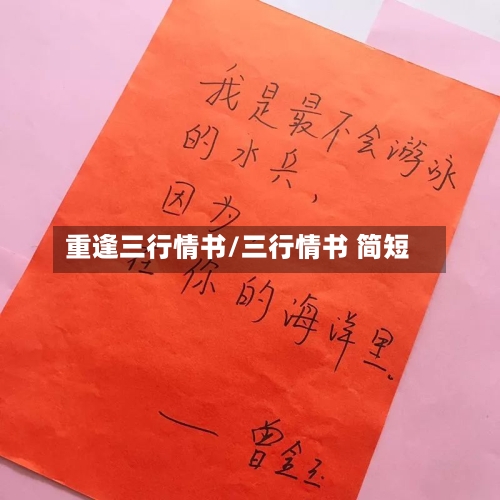 我是最不会游泳
的水兵，
因为
重逢三行情书/三行情书 简短
在你的海洋里。
— 曾金玉